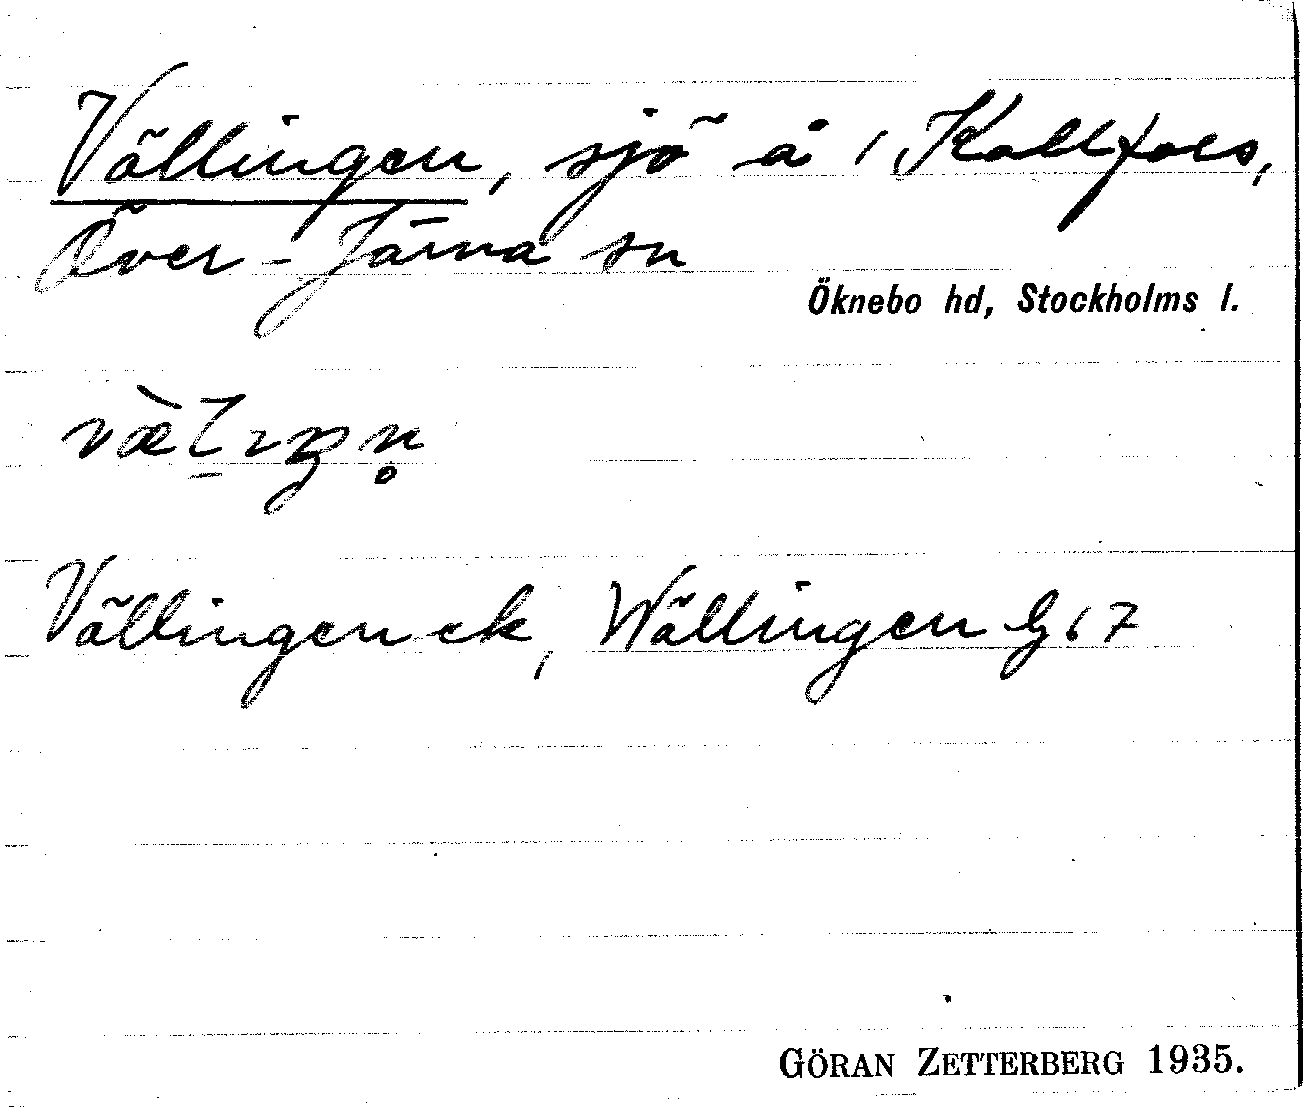 Vällingen, sjö å i Kallfors,
Över-Järna sn
Öknebo hd, Stockholms l.
Vällingen ek, Wällingen
GÖRAN ZETTERBERG 1935.